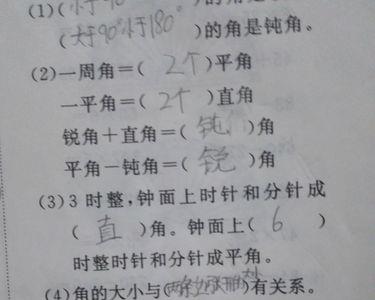 (1)(小于90°)的角是
(大于90°小于180°)的角是钝角。
(2)一周角=( 2个 )平角
一平角=( 2个 )直角
锐角+直角=( 钝 )角
平角-钝角=( 锐 )角
(3)3时整,钟面上时针和分针成
( 直 )角。钟面上( 6 )
时整时针和分针成平角。
(4)角的大小与(两条边)有关系。